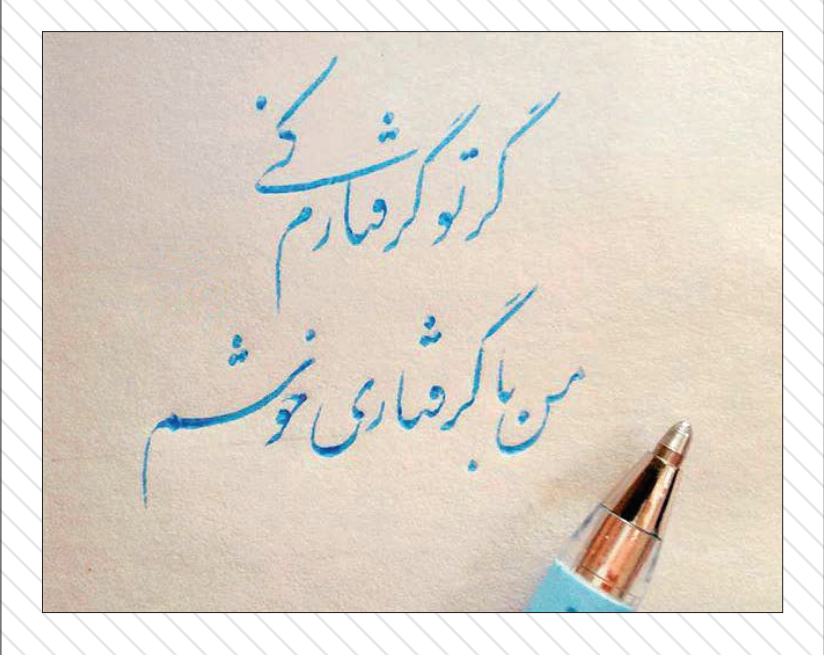 گر تو گرفتارم کنی
من با گرفتاری خوشم